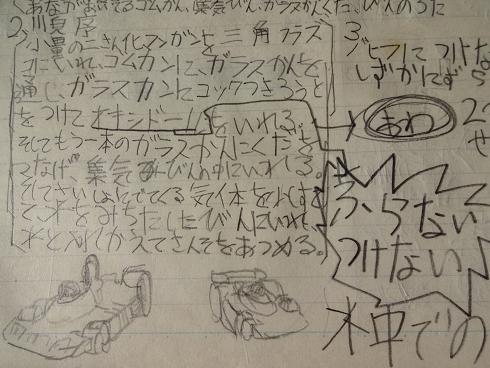 くあながあいてるゴムかん、集気びん、ガラスかんくだ、びんのうた
2、順序
小量の二さん化マンガンを三角フラス
コにいれ、ゴムカンに、ガラスかんを
通し、ガラスカンにコックつきろうと
をつけてオキシドールをいれる。
そしてもう一本のガラスかんにくだを
つなげ、集気びんの中にいれる。
そしてさいしょにでてくる気体を
て、水をみちたしたびんにいれ、
水と入れかえてさんそをあつめる。
3、
つけな
しずかにず
あわ
ふらない
つけない
水中での